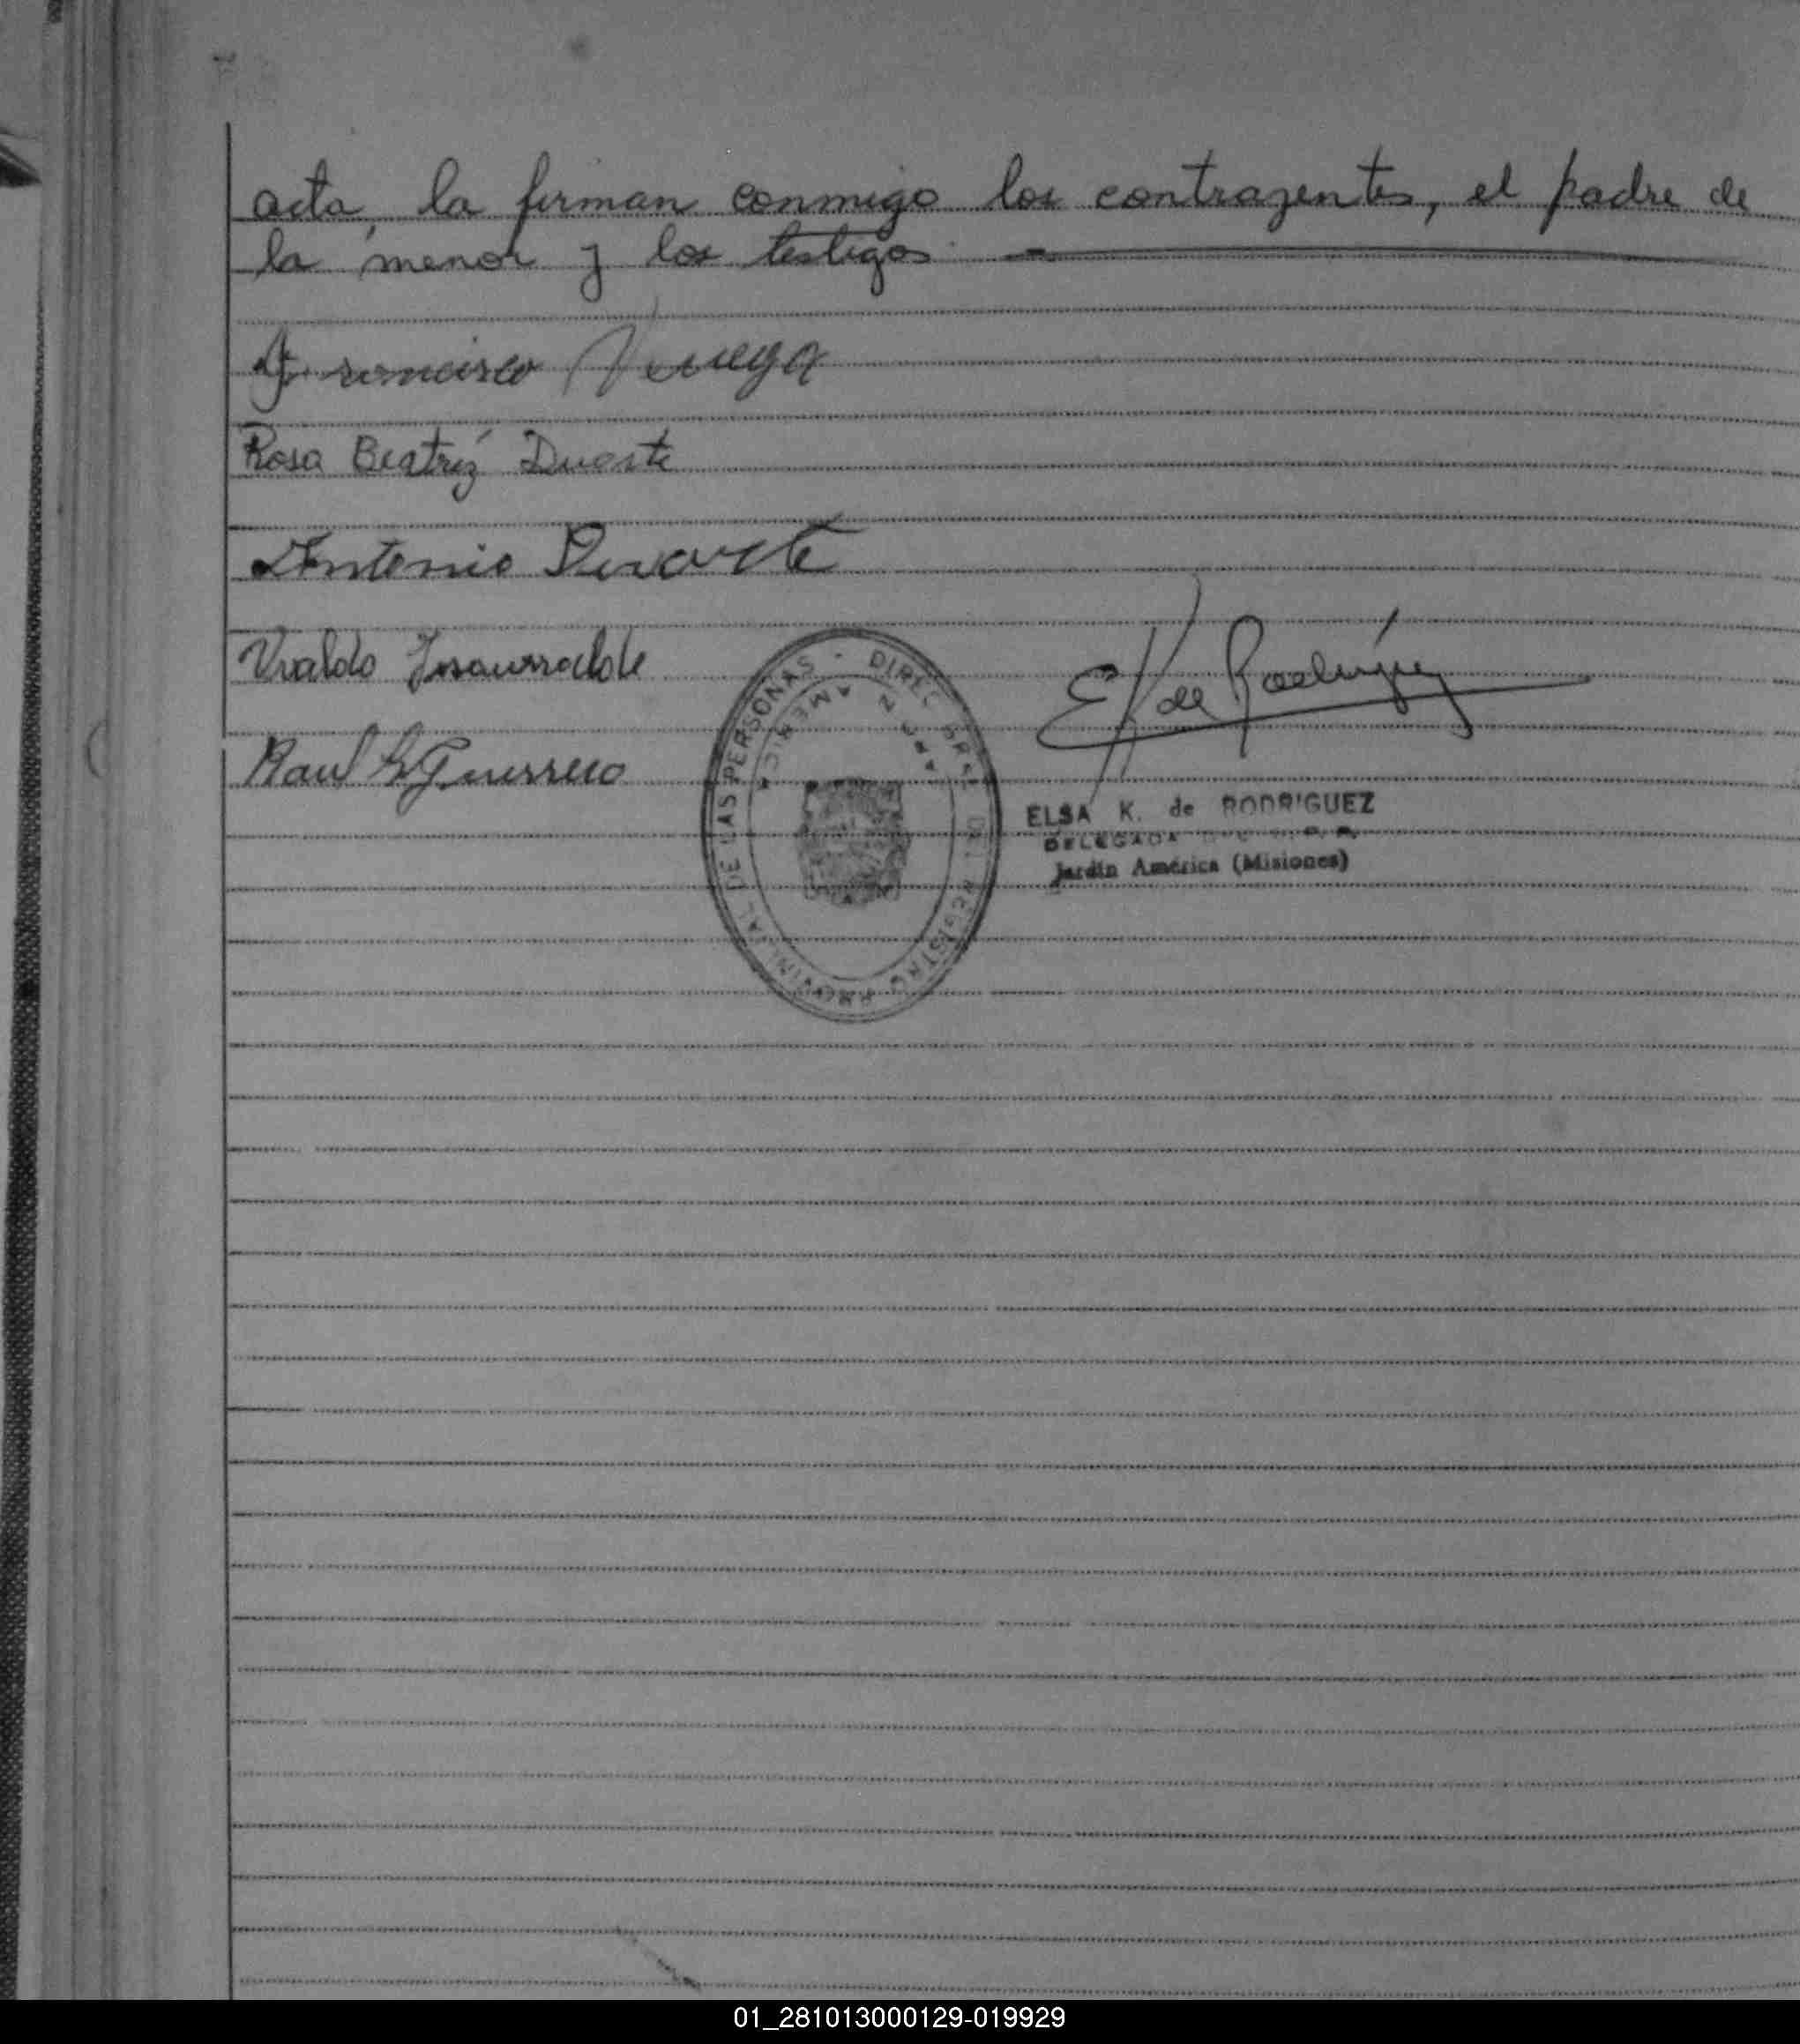 acta, la firman conmigo los contrayentes, el padre de
la menor y los testigos.
Francisco
Rosa Beatríz Duarte
Antonio Duarte
Ubaldo Insaurralde
Raul Guerrero
E K de Rodríguez
DIREC. GRAL. DEL REGISTRO PROVINCIAL DE LAS PERSONAS
AMERICA
ELSA K. de RODRIGUEZ
DELEGADA
Jardín América (Misiones)
01_281013000129-019929